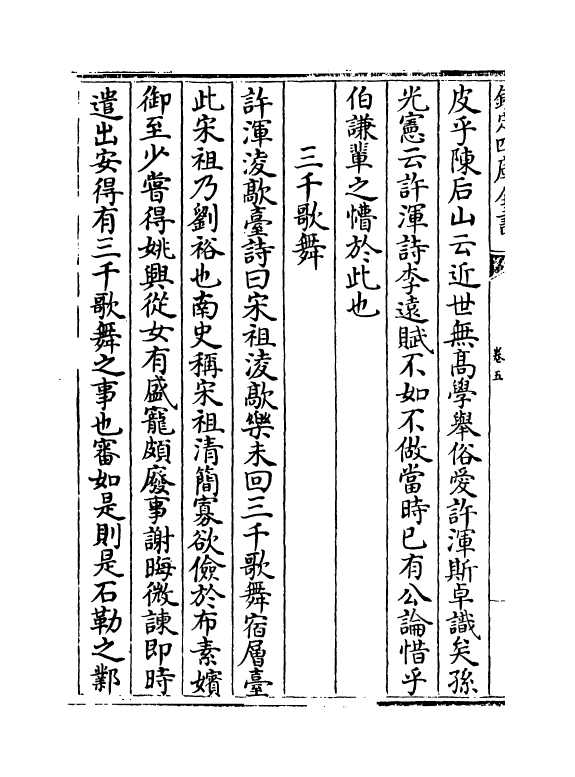 欽定四庫全書
卷五
皮乎陳后山云近世無髙學舉俗愛許渾斯卓識矣孫
光憲云許渾詩李逺賦不如不做當時已有公論惜乎
伯謙軰之懵於此也
三千歌舞
許渾淩歊臺詩曰宋祖淩歊樂未回三千歌舞宿層臺
此宋祖乃劉裕也南史稱宋祖清簡寡欲儉於布素嬪
御至少嘗得姚興從女有盛寵頗廢事謝晦微諫即時
遣出安得有三千歌舞之事也審如是則是石勒之鄴